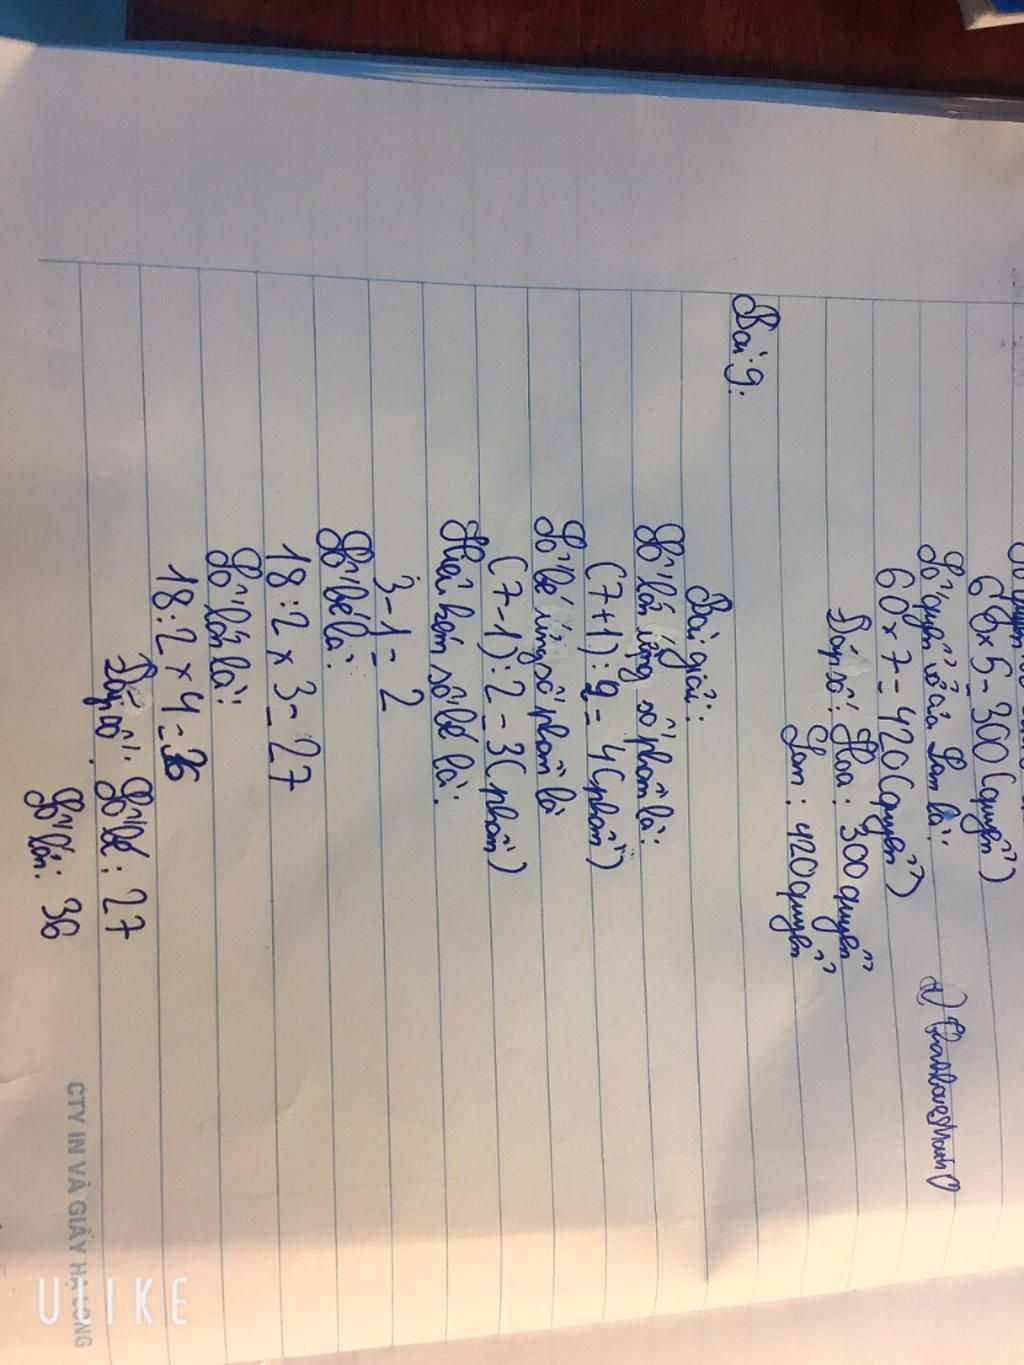 66 x 5 = 300 (quyển)
Số quyển vở của Lam là:
60 x 7 = 420 (quyển)
Đáp số: Hoa: 300 quyển
Lam: 420 quyển
Bài 9.
Bài giải:
Số lớn ứng số phần là:
(7+1) : 2 = 4 (phần)
Số bé ứng số phần là
(7-1) : 2 = 3 (phần)
số bé là:
3 - 1 = 2
Số bé là:
18 : 2 x 3 = 27
Số lớn là:
18 : 2 x 4 = 36
Đáp số: Số bé: 27
Số lớn: 36
CTY IN VÀ GIẤY HẠ LONG
ULIKE